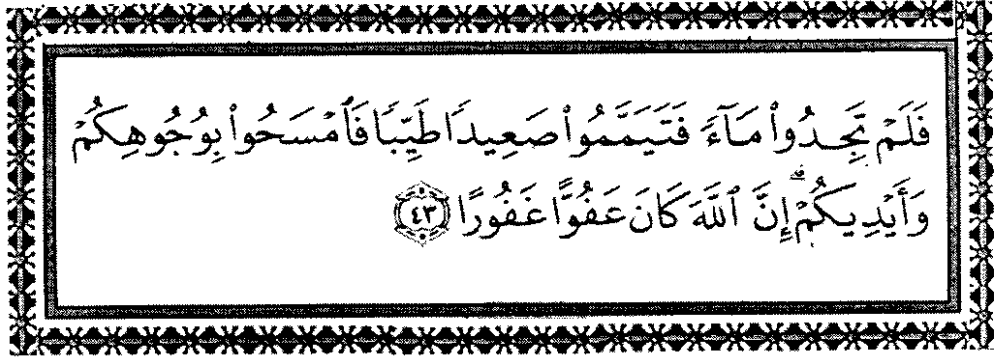 فَلَمْ تَجِدُوا۟ مَآءً فَتَيَمَّمُوا۟ صَعِيدًا طَيِّبًا فَٱمْسَحُوا۟ بِوُجُوهِكُمْ
وَأَيْدِيكُمْ ۗ إِنَّ ٱللَّهَ كَانَ عَفُوًّا غَفُورًا ٤٣